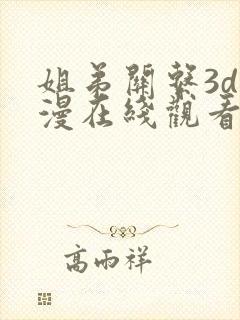 姐弟關繫3d
漫在綫觀看
高雨祥